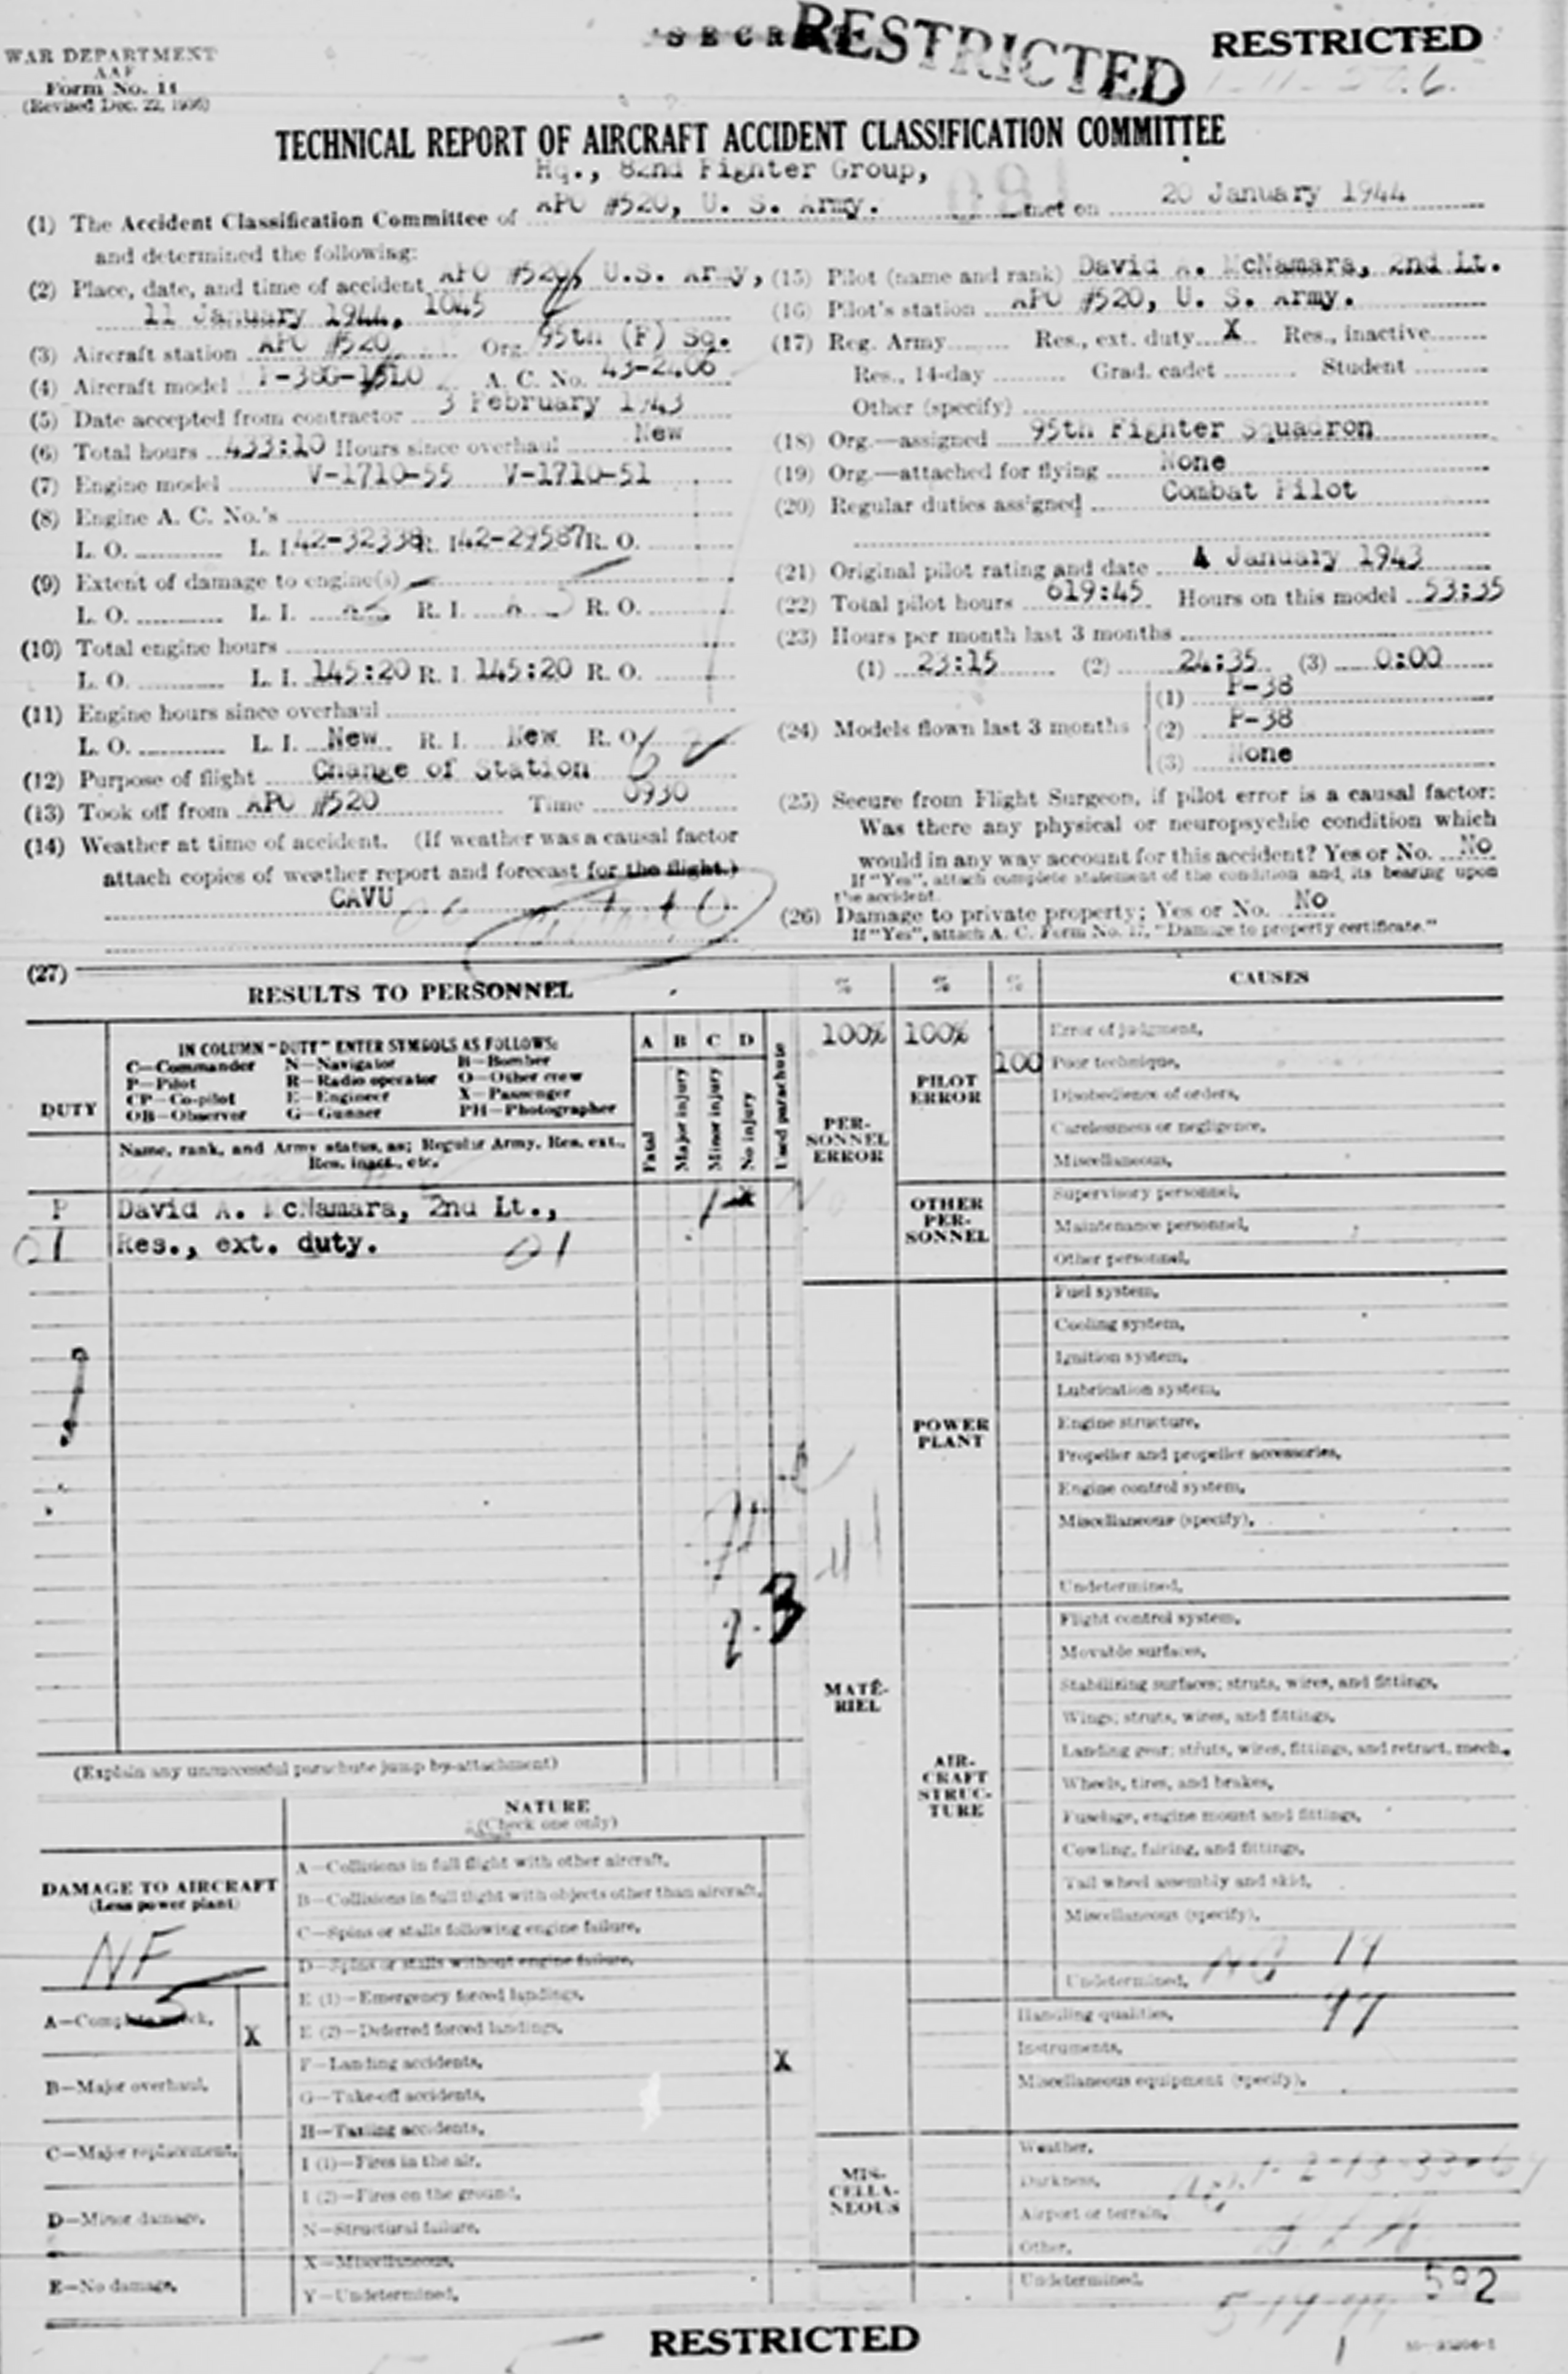 RESTRICTED RESTRICTED
WAR DEPARTMENT
AAF
Form No. 14
(Revised Dec. 22, 1936)
TECHNICAL REPORT OF AIRCRAFT ACCIDENT CLASSIFICATION COMMITTEE
Hq., 82nd Fighter Group,
(1) The Accident Classification Committee of APO #520, U. S. Army. met on 20 January 1944
and determined the following:
(2) Place, date, and time of accident APO #520, U.S. Army,
11 January 1944, 1045
(3) Aircraft station APO #520 Org. 95th (F) Sq.
(4) Aircraft model A. C. No. 43-2406
(5) Date accepted from contractor 3 February 1943
(6) Total hours 433:10 Hours since overhaul New
(7) Engine model V-1710-55 V-1710-51
(8) Engine A. C. No.'s
L. O. L. I. 42-32338 R. I. 42-29587 R. O.
(9) Extent of damage to engine(s)
L. O. L. I. R. I. R. O.
(10) Total engine hours
L. O. L. I. 145:20 R. I. 145:20 R. O.
(11) Engine hours since overhaul
L. O. L. I. New R. I. New R. O.
(12) Purpose of flight Change of Station
(13) Took off from APO #520 Time 0930
(14) Weather at time of accident. (If weather was a causal factor
attach copies of weather report and forecast for the flight.)
CAVU
(15) Pilot (name and rank) David A. McNamara, 2nd Lt.
(16) Pilot's station APO #520, U. S. Army.
(17) Reg. Army Res., ext. duty X Res., inactive
Res., 14-day Grad. cadet Student
Other (specify)
(18) Org.—assigned 95th Fighter Squadron
(19) Org.—attached for flying None
(20) Regular duties assigned Combat Pilot
(21) Original pilot rating and date 4 January 1943
(22) Total pilot hours 619:45 Hours on this model 53:35
(23) Hours per month last 3 months
(1) 23:15 (2) 24:35 (3) 0:00
(24) Models flown last 3 months
(1) P-38
(2) P-38
(3) None
(25) Secure from Flight Surgeon, if pilot error is a causal factor:
Was there any physical or neuropsychic condition which
would in any way account for this accident? Yes or No. No
If "Yes", attach complete statement of the condition and its bearing upon
the accident.
(26) Damage to private property; Yes or No. No
If "Yes", attach A. C. Form No. 17, "Damage to property certificate."
(27)
RESULTS TO PERSONNEL
DUTY
IN COLUMN "DUTY" ENTER SYMBOLS AS FOLLOWS:
C—Commander N—Navigator B—Bomber
P—Pilot R—Radio operator O—Other crew
CP—Co-pilot E—Engineer X—Passenger
OB—Observer G—Gunner PH—Photographer
Name, rank, and Army status, as: Regular Army, Res. ext.,
Res. inact., etc.
A B C D
Fatal
Major injury
Minor injury
No injury
Used parachute
P David A. McNamara, 2nd Lt., X
Res., ext. duty. 01
01
3
(Explain any unsuccessful parachute jump by attachment)
DAMAGE TO AIRCRAFT
(Less power plant)
NF
A—Complete wreck. X
B—Major overhaul.
C—Major replacement.
D—Minor damage.
E—No damage.
NATURE
(Check one only)
A—Collisions in full flight with other aircraft.
B—Collisions in full flight with objects other than aircraft.
C—Spins or stalls following engine failure.
D—Spins or stalls without engine failure.
E (1)—Emergency forced landings.
E (2)—Deferred forced landings.
F—Landing accidents. X
G—Take-off accidents.
H—Taxiing accidents.
I (1)—Fires in the air.
I (2)—Fires on the ground.
N—Structural failure.
X—Miscellaneous.
Y—Undetermined.
% % % CAUSES
100% 100%
PERSONNEL ERROR
PILOT ERROR
Error of judgment.
100 Poor technique.
Disobedience of orders.
Carelessness or negligence.
Miscellaneous.
OTHER PERSONNEL
Supervisory personnel.
Maintenance personnel.
Other personnel.
MATÉRIEL
POWER PLANT
Fuel system.
Cooling system.
Ignition system.
Lubrication system.
Engine structure.
Propeller and propeller accessories.
Engine control system.
Miscellaneous (specify).
Undetermined.
AIRCRAFT STRUCTURE
Flight control system.
Movable surfaces.
Stabilizing surfaces; struts, wires, and fittings.
Wings; struts, wires, and fittings.
Landing gear; struts, wires, fittings, and retract. mech.
Wheels, tires, and brakes.
Fuselage, engine mount and fittings.
Cowling, fairing, and fittings.
Tail wheel assembly and skid.
Miscellaneous (specify).
Undetermined.
Handling qualities.
Instruments.
Miscellaneous equipment (specify).
MISCELLANEOUS
Weather.
Darkness.
Airport or terrain.
Other.
Undetermined.
502
RESTRICTED